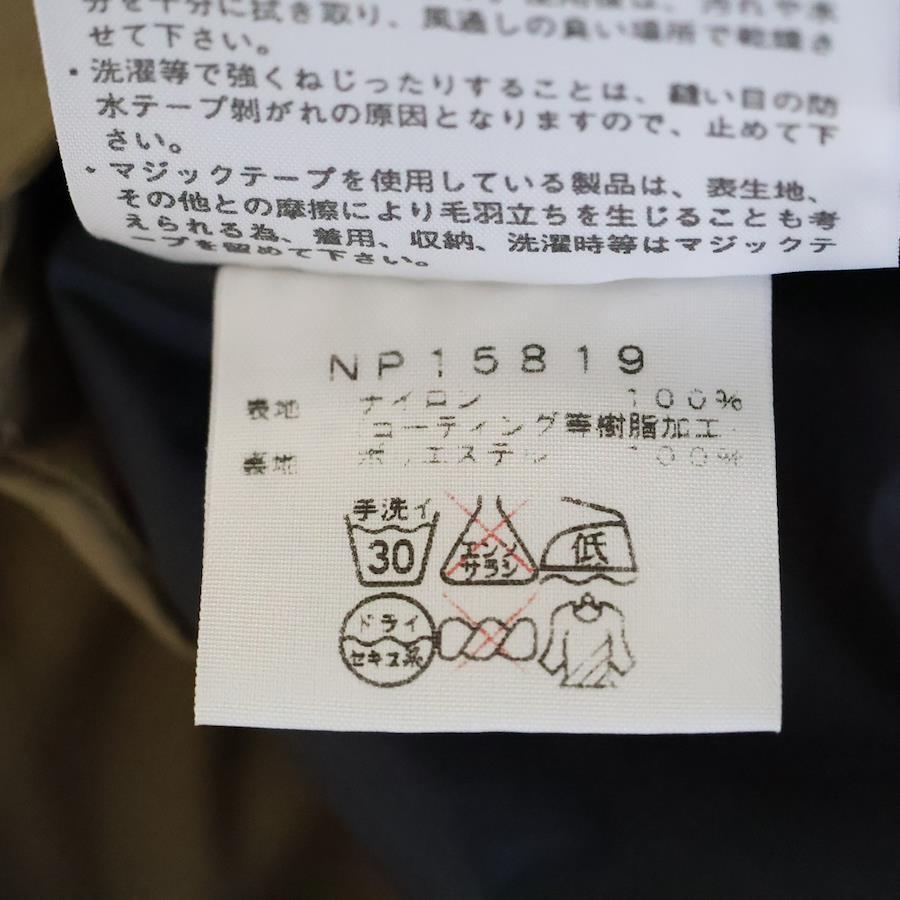 分を十分に拭き取り、風通しの良い場所で乾燥さ
せて下さい。
・洗濯等で強くねじったりすることは、縫い目の防
水テープ剥がれの原因となりますので、止めて下
さい。
・マジックテープを使用している製品は、表生地、
その他との摩擦により毛羽立ちを生じることも考
えられる為、着用、収納、洗濯時等はマジックテ
ープを留めて下さい。
NP15819
表地 ナイロン 100%
(コーティング等樹脂加工
裏地 ポリエステル 100%
手洗イ
30
エンソ
サラシ
低
ドライ
セキユ系